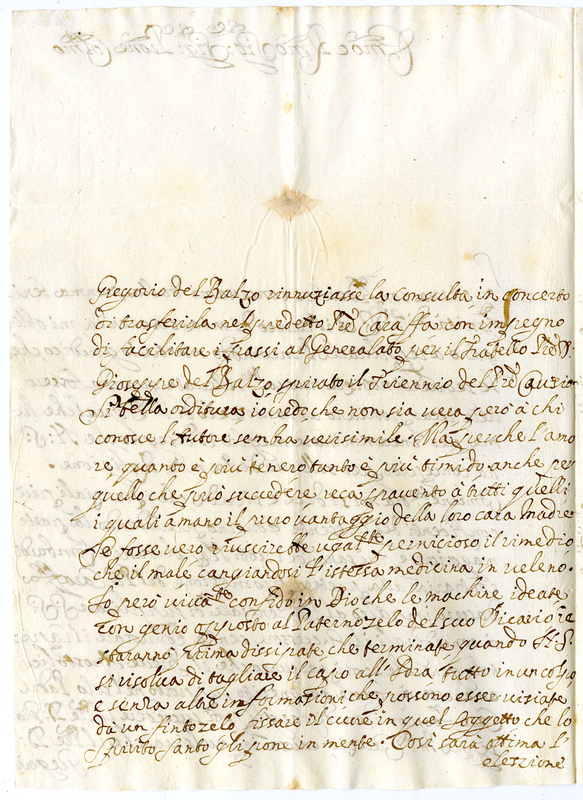 Gregorio del Balzo rinnuziasse la Consulta, in concerto
di trasferirla nel predetto Pre Caraffa con impegno
di facilitare i passi al Generalato per il Fratello Pre D.
Gioseppe del Balzo, spirato il Triennio del Pre
Sì bella orditura io credo che non sia vera però à chi
conosce l'Autore sembra verisimile. Ma perche l'amo
re, quanto è più tenero tanto è più timido anche per
quello che può succedere reca spavento à tutti quelli
i quali amano il puro vantaggio della loro cara Madre
Se fosse vero riuscirebbe ugalte pernicioso il rimedio
che il male cangiandosi l'istessa medicina in veleno.
Io però vivate confido in Dio che le machine ideate
con genio opposto al Paterno zelo del suo Vicario re
staranno prima dissipate che terminate quando V. S.
si risolva di tagliare il capo all'Idra tutto in un colpo
e senza altre informationi che possono esser viziate
da un finto zelo fissare il cuore in quel soggetto che lo
Spirito Santo gli pone in mente. Così sarà ottima l'
elezzione